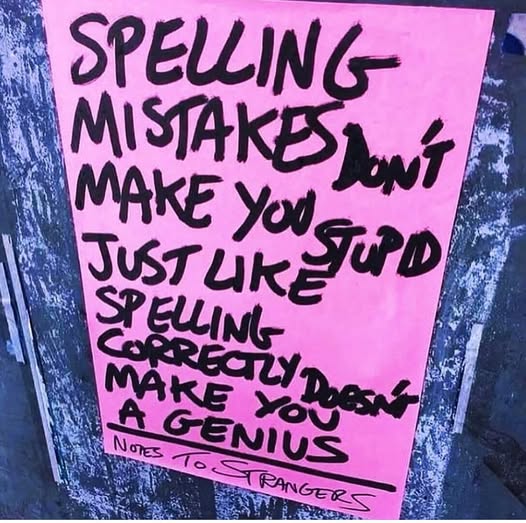 SPELLING
MISTAKES DON'T
MAKE YOU STUPID
JUST LIKE
SPELLING
CORRECTLY DOESN'T
MAKE YOU
A GENIUS
NOTES TO STRANGERS